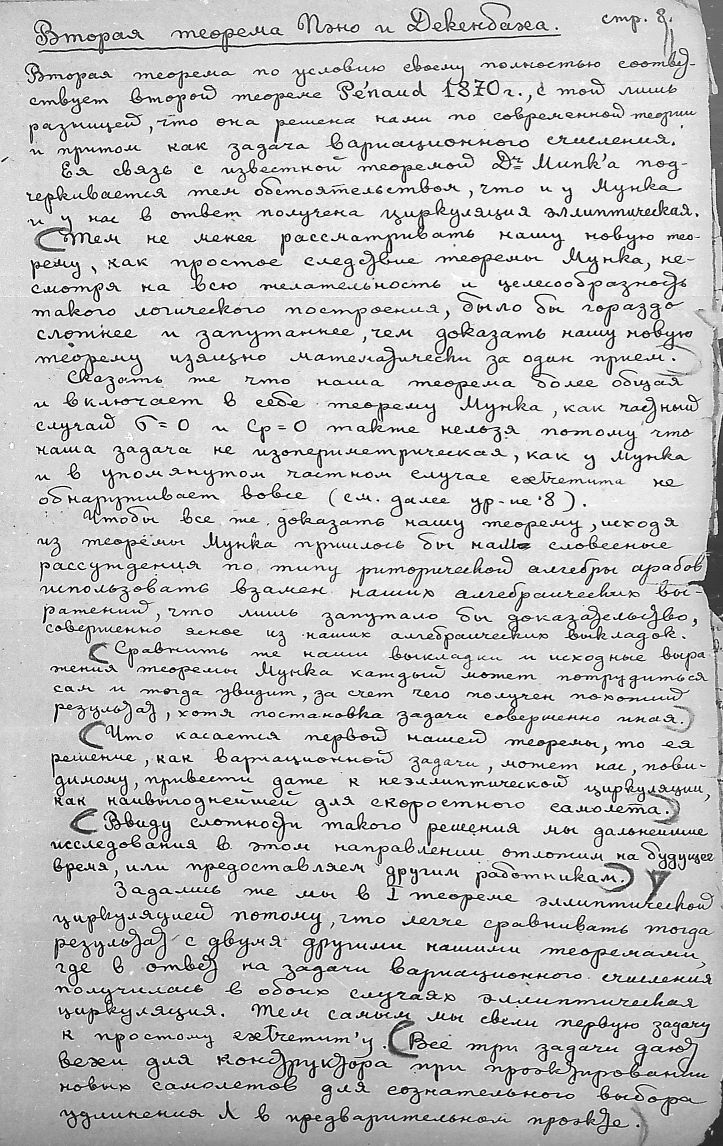 Вторая теорема Пэно и Декенбаха. стр. 8.
Вторая теорема по условию своему полностью соответ-
ствует второй теореме Pénaud 1870 г., с той лишь
разницей, что она решена нами по современной теории
и притом как задача вариационного счисления.
Ея связь с известной теоремой Dr Мипк'а под-
черкивается тем обстоятельством, что и у Мунка
и у нас в ответ получена циркуляция эллиптическая.
(Тем не менее рассматривать нашу новую тео-
рему, как простое следствие теоремы Мунка, не-
смотря на всю желательность и целесообразность
такого логического построения, было бы гораздо
сложнее и запутаннее, чем доказать нашу новую
теорему изящно математически за один прием.)
Сказать же что наша теорема более общая
и включает в себе теорему Мунка, как частный
случай σ=0 и Cp=0 также нельзя потому что
наша задача не изопериметрическая, как у Мунка
и в упомянутом частном случае extremum'а не
обнаруживает вовсе (см. далее ур-ие 8).
Чтобы все же доказать нашу теорему, исходя
из теоремы Мунка пришлось бы нам словесные
рассуждения по типу риторической алгебры арабов
использовать взамен наших алгебраических вы-
ражений, что лишь запутало бы доказательство,
совершенно ясное из наших алгебраических выкладок.
(Сравнить же наши выкладки и исходные выра
жения теоремы Мунка каждый может потрудиться
сам и тогда увидит, за счет чего получен похожий
результат, хотя постановка задачи совершенно иная.)
(Что касается первой нашей теоремы, то ея
решение, как вариационной задачи, может нас, пови-
димому, привести даже к неэллиптической циркуляции,
как наивыгоднейшей для скоростного самолета.)
(Ввиду сложности такого решения мы дальнейшие
исследования в этом направлении отложим на будущее
время, или предоставляем другим работникам.)
Задались же мы в I теореме эллиптической
циркуляцией потому, что легче сравнивать тогда
результат с двумя другими нашими теоремами,
где в ответ на задачи вариационного счисления
получилась в обоих случаях эллиптическая
циркуляция. Тем самым мы свели первую задачу
к простому extremum'у. (Все три задачи дают
вехи для конструктора при проэктировании
новых самолетов для сознательного выбора
удлинения λ в предварительном проэкте.)